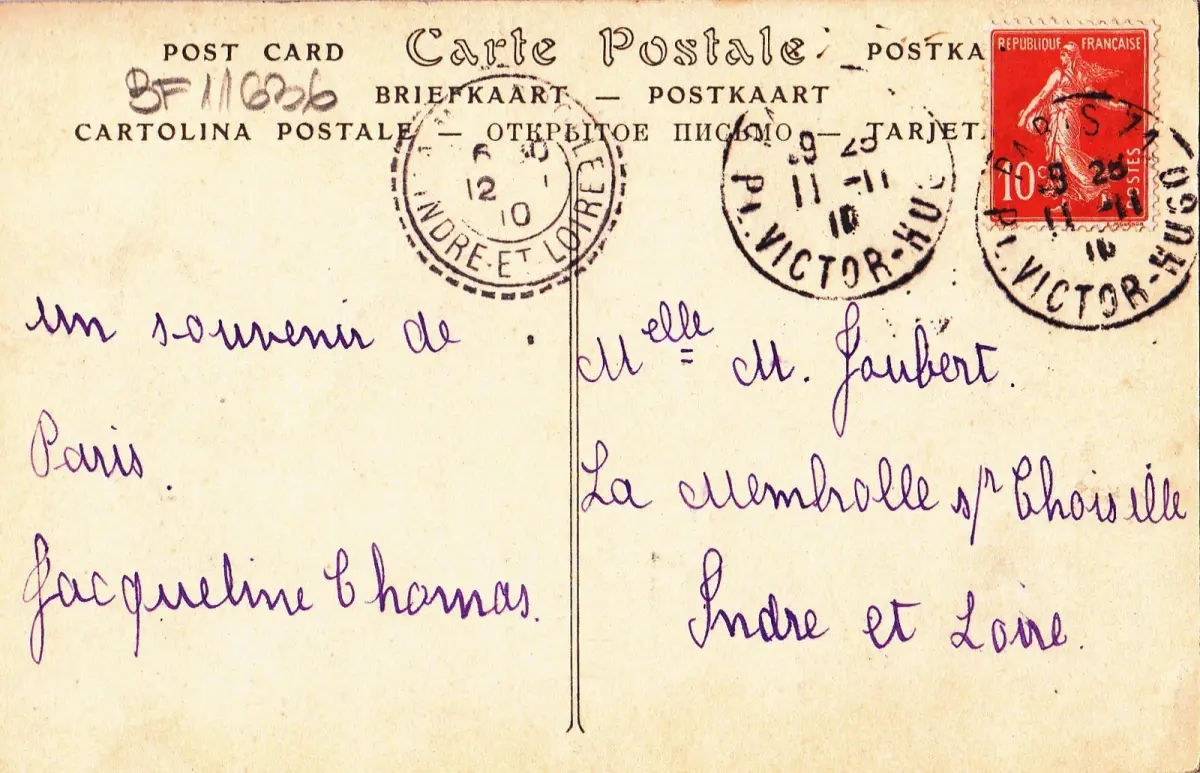 POST CARD Carte Postale POSTKA
BF 11636
BRIEFKAART — POSTKAART
CARTOLINA POSTALE — ОТКРЫТОЕ ПИСЬМО — TARJET
REPUBLIQUE FRANÇAISE
10c
POSTES
12
10
INDRE-ET-LOIRE
9 25
11 -11
10
PL. VICTOR-HUGO
PARIS
9 26
11 -11
10
PL. VICTOR-HUGO
un souvenir de
Paris.
Jacqueline Thomas.
Melle M. Joubert.
La Membrolle s/r Choisille
Indre et Loire.